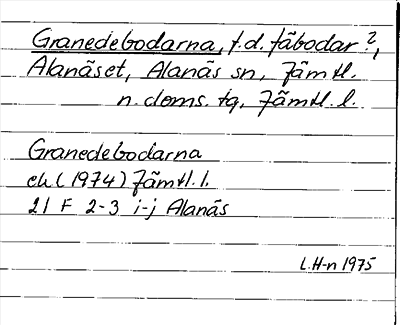 Granedebodarna, f.d. fäbodar?,
Alanäset, Alanäs sn, Jämtl.
n. doms. tg, Jämtl. l.
Granedebodarna
ek (1974) Jämtl. l.
21 F 2-3 i-j Alanäs
L.H-n 1975